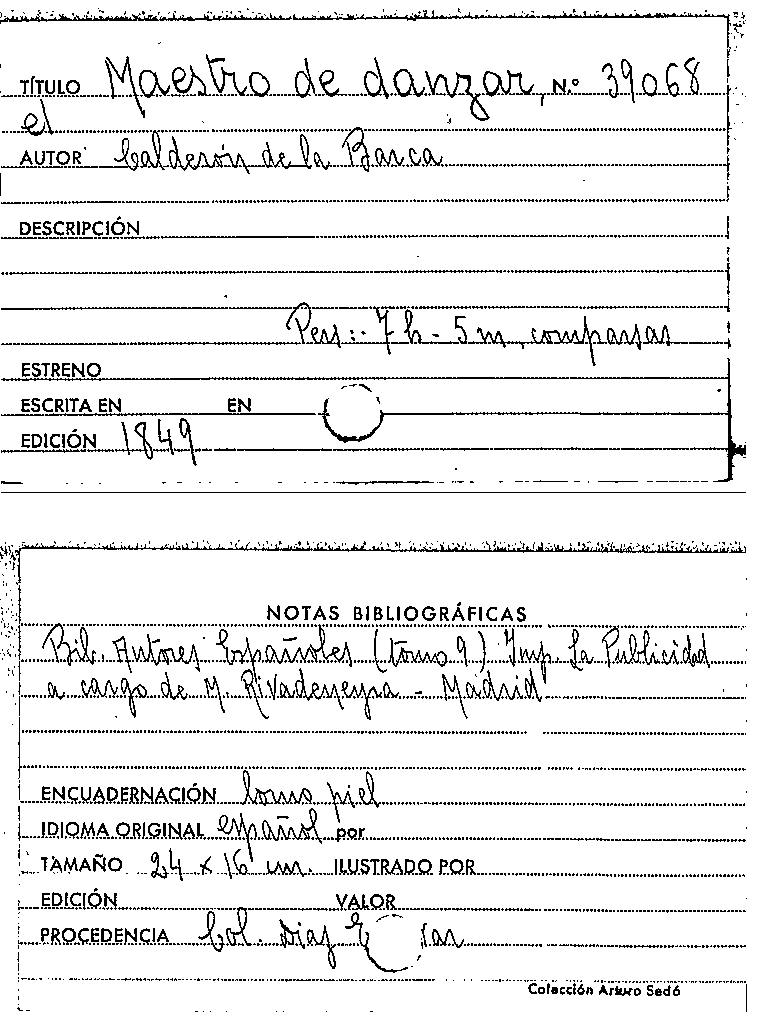 TÍTULO Maestro de danzar, N.º 39068
el
AUTOR Calderón de la Barca
DESCRIPCIÓN
Pers:- 7 h - 5 m, comparsas
ESTRENO
ESCRITA EN EN
EDICIÓN 1849
NOTAS BIBLIOGRÁFICAS
Bib. Autores Españoles (tomo 9) Imp. La Publicidad
a cargo de M. Rivadeneyra - Madrid
ENCUADERNACIÓN lomo piel
IDIOMA ORIGINAL español por
TAMAÑO 24 x 16 cm. ILUSTRADO POR
EDICIÓN VALOR
PROCEDENCIA Col. Diaz
Colección Arturo Sedó